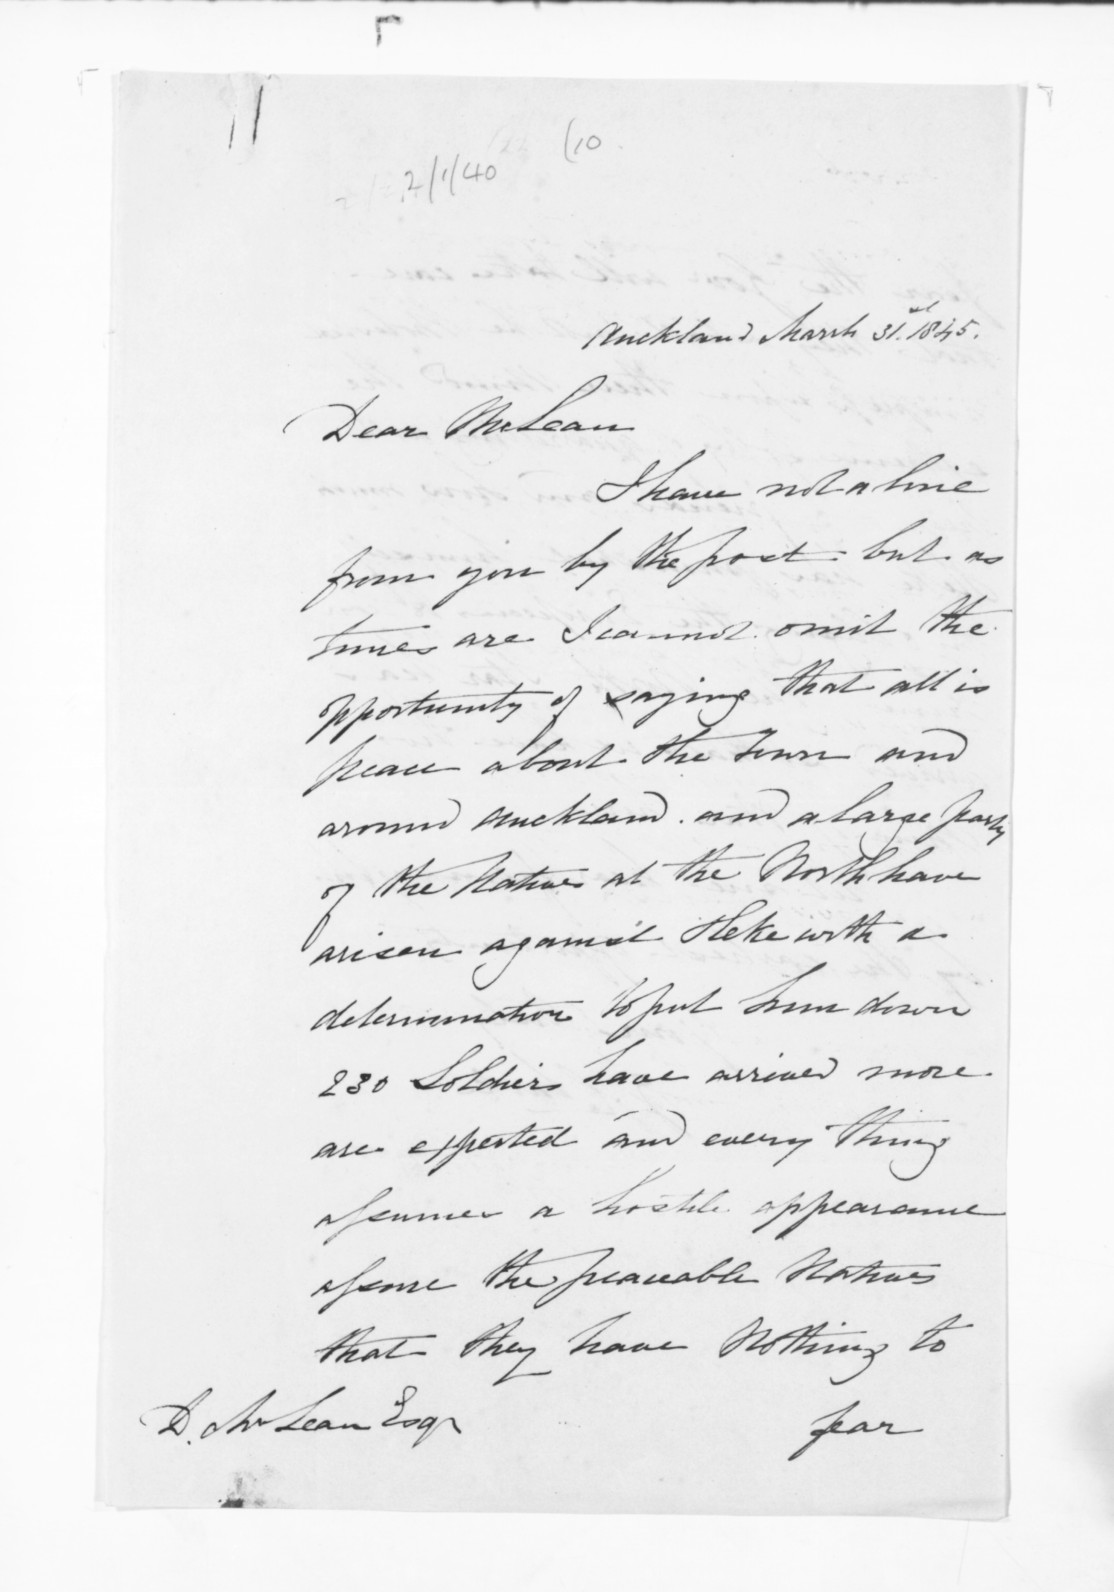 (10
2/1/40
Auckland March 31st 1845.
Dear McLean
I have not a line
from you by the post but as
times are I cannot omit the
opportunity of saying that all is
peace about the Town and
around Auckland. and a large party
of the Natives at the North have
arisen against Heke with a
determination to put him down
230 Soldiers have arrived more
are expected and every thing
assumes a hostile appearance
assure the peaceable Natives
that they have Nothing to
fear
D. McLean Esqr